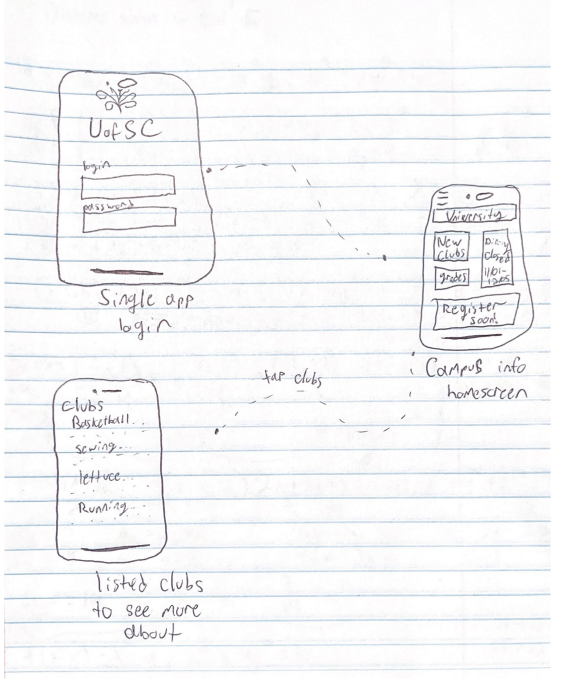 UofSC
login
password
Single app
login
University
New
clubs
Dining
closed
grades
Register
soon!
Campus info
homescreen
tap clubs
Clubs
Basketball...
sewing...
lettuce...
Running...
listed clubs
to see more
about